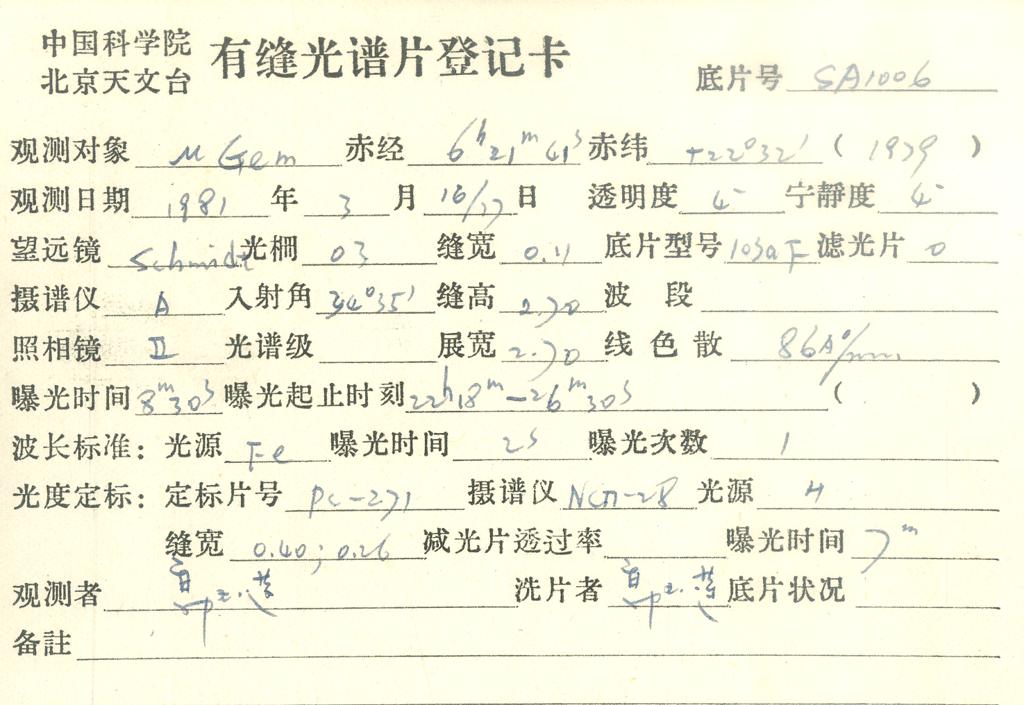 中国科学院
北京天文台
有缝光谱片登记卡
底片号 SA1006
观测对象 μ Gem 赤经 6h21m41s 赤纬 +22°32′ ( 1979 )
观测日期 1981 年 3 月 16/17 日 透明度 5 宁静度 5
望远镜 Schmidt 光栅 03 缝宽 0.11 底片型号 103aF 滤光片 0
摄谱仪 A 入射角 34°35′ 缝高 2.70 波段
照相镜 II 光谱级 展宽 2.70 线色散 86A°/mm
曝光时间 8m30s 曝光起止时刻 22h18m-26m30s ( )
波长标准: 光源 Fe 曝光时间 2s 曝光次数 1
光度定标: 定标片号 PC-271 摄谱仪 光源 H
缝宽 0.40; 0.26 减光片透过率 曝光时间 7m
观测者 洗片者 底片状况
备註